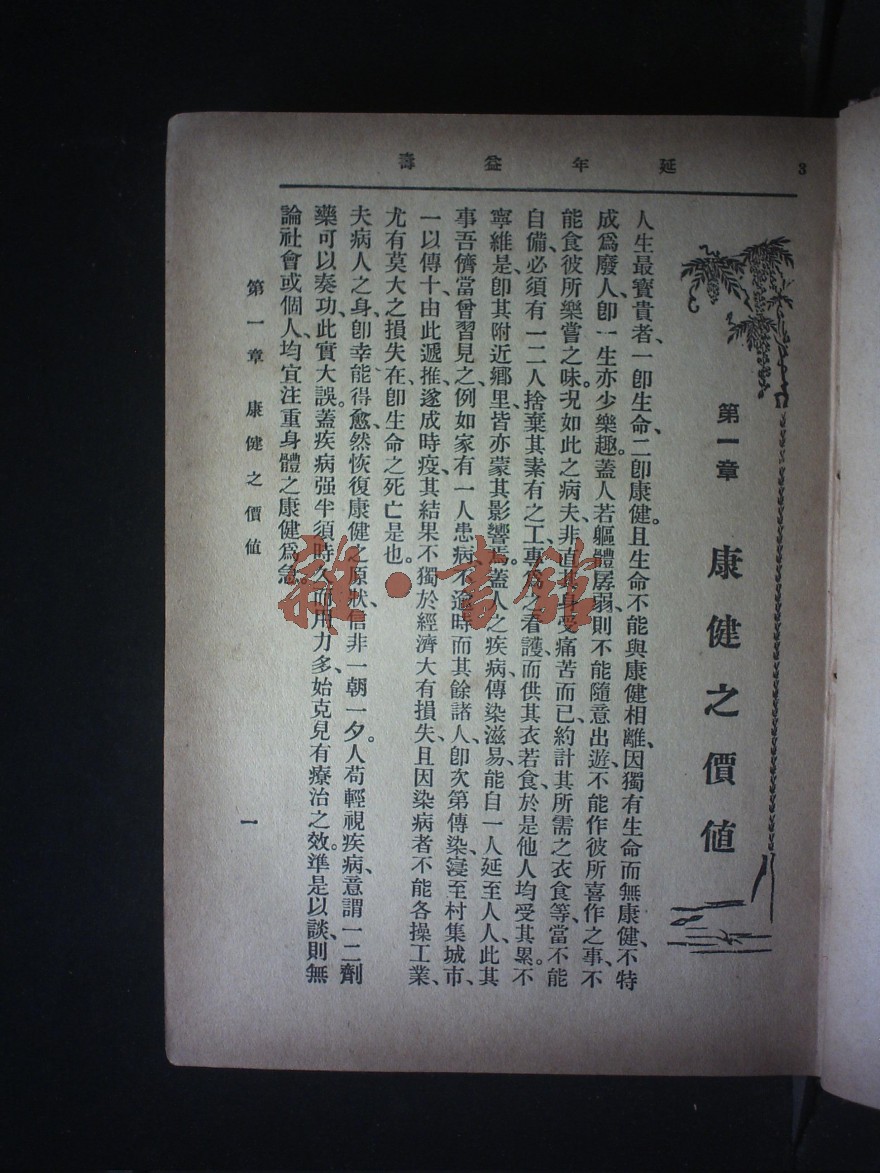 延年益壽
3
第一章 康健之價値
人生最寶貴者、一卽生命、二卽康健。且生命不能與康健相離、因獨有生命而無康健、不特
成爲廢人、卽一生亦少樂趣。蓋人若軀體孱弱、則不能隨意出遊、不能作彼所喜作之事、不
能食彼所樂嘗之味。況如此之病夫、非直其身受痛苦而已、約計其所需之衣食等、當不能
自備、必須有一二人捨棄其素有之工、專爲之看護、而供其衣若食、於是他人均受其累。不
寧維是、卽其附近鄉里、皆亦蒙其影響焉。蓋人之疾病、傳染滋易、能自一人延至人人、此其
事吾儕當曾習見之、例如家有一人患病、不逾時而其餘諸人、卽次第傳染、寖至村集城市、
一以傳十、由此遞推、遂成時疫、其結果不獨於經濟大有損失、且因染病者不能各操工業、
尤有莫大之損失在、卽生命之死亡是也。
夫病人之身、卽幸能得愈、然恢復康健之原狀、信非一朝一夕。人苟輕視疾病、意謂一二劑
藥可以奏功、此實大誤。蓋疾病强半須時久而用力多、始克見有療治之效。準是以談、則無
論社會或個人、均宜注重身體之康健爲急。
第一章 康健之價値
一
雜·書館